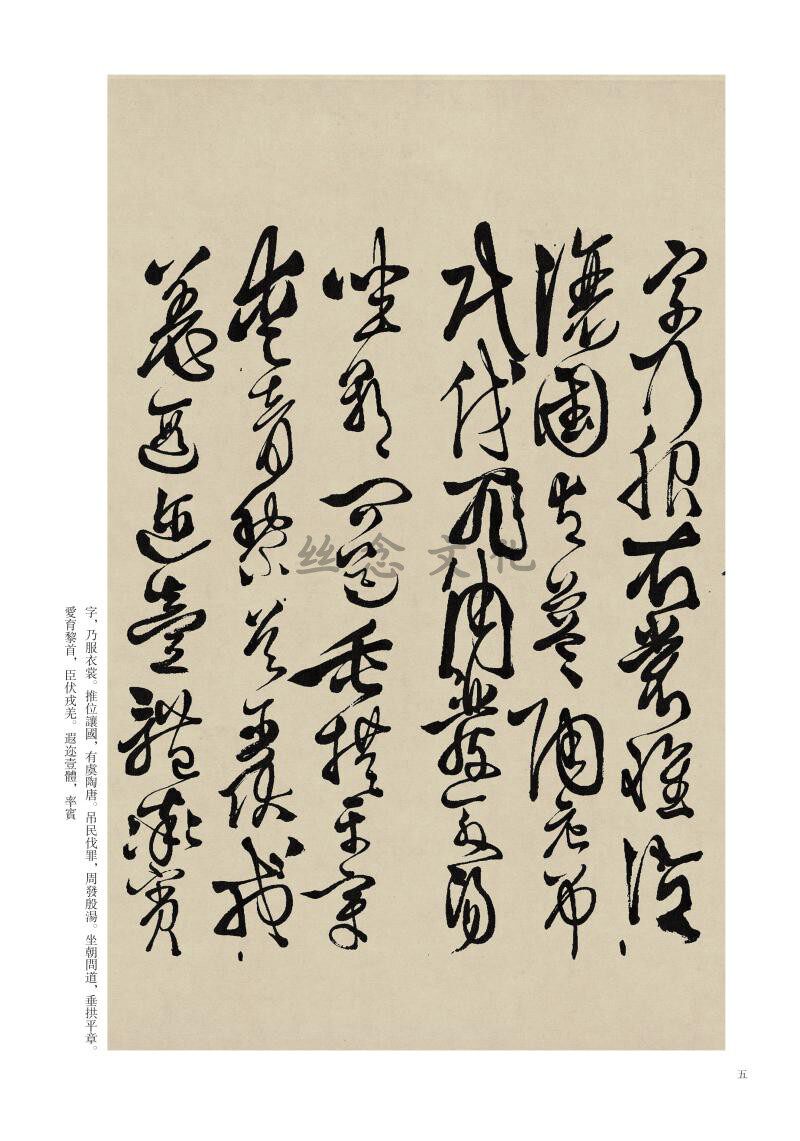 字乃服衣裳推位
讓國有虞陶唐弔
民伐罪周發殷湯
坐朝問道垂拱平章
愛育黎首臣伏戎
羌遐迩壹體率賓
絲念文化
字，乃服衣裳。推位讓國，有虞陶唐。吊民伐罪，周發殷湯。坐朝問道，垂拱平章。
愛育黎首，臣伏戎羌。遐迩壹體，率賓
五